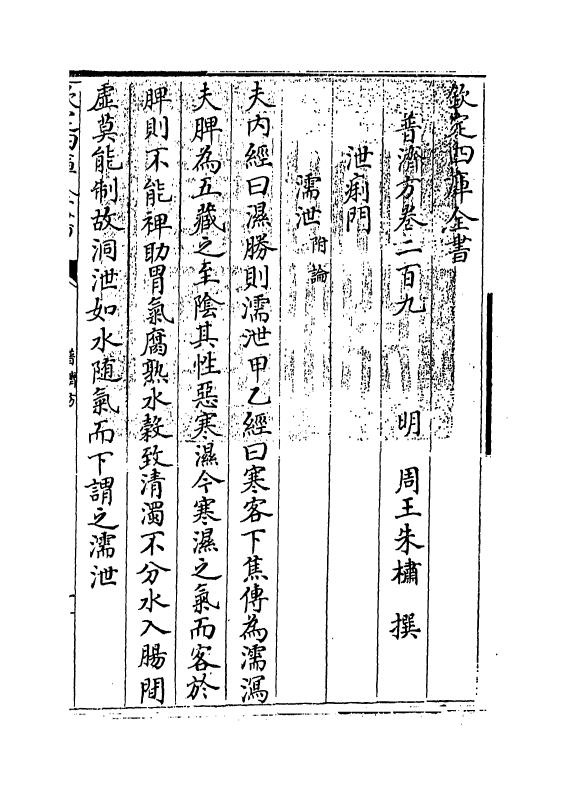 欽定四庫全書
普濟方卷二百九
明 周王朱橚 撰
泄痢門
濡泄附論
夫内經曰濕勝則濡泄甲乙經曰寒客下焦傳為濡瀉
夫脾為五藏之至陰其性惡寒濕今寒濕之氣而客於
脾則不能裨助胃氣腐熟水穀致清濁不分水入腸間
虛莫能制故洞泄如水随氣而下謂之濡泄
普濟方